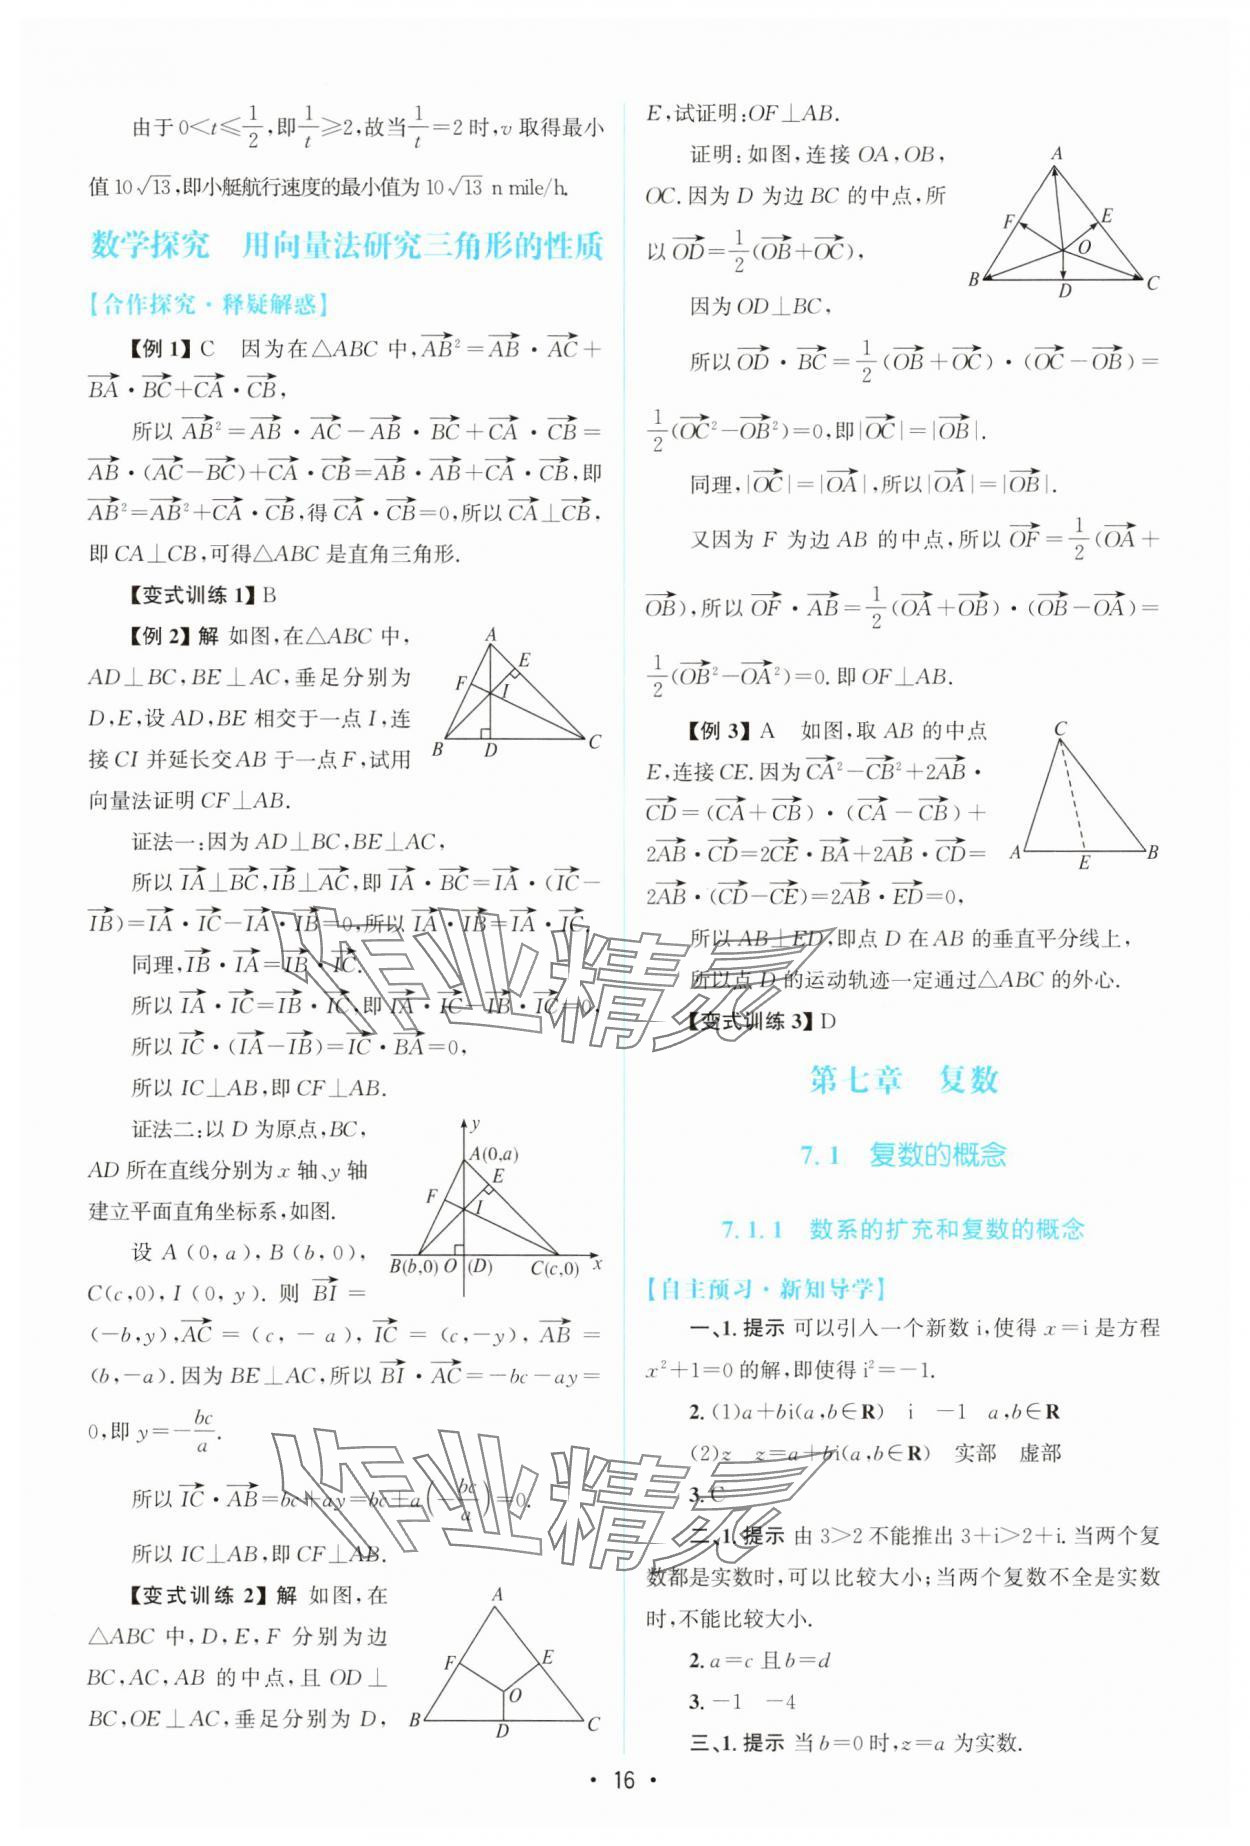 由于0<t≤1/2,即1/t≥2,故当1/t=2时,v取得最小
值10√13,即小艇航行速度的最小值为10√13 n mile/h.
数学探究 用向量法研究三角形的性质
【合作探究·释疑解惑】
【例1】C 因为在△ABC中,AB→²=AB→·AC→+
BA→·BC→+CA→·CB→,
所以AB→²=AB→·AC→-AB→·BC→+CA→·CB→=
AB→·(AC→-BC→)+CA→·CB→=AB→·AB→+CA→·CB→,即
AB→²=AB→²+CA→·CB→,得CA→·CB→=0,所以CA→⊥CB→,
即CA⊥CB,可得△ABC是直角三角形.
【变式训练1】B
【例2】解 如图,在△ABC中,
AD⊥BC,BE⊥AC,垂足分别为
D,E,设AD,BE相交于一点I,连
接CI并延长交AB于一点F,试用
向量法证明CF⊥AB.
A
E
F
I
B
D
C
证法一:因为AD⊥BC,BE⊥AC,
所以IA→⊥BC→,IB→⊥AC→,即IA→·BC→=IA→·(IC→-
IB→)=IA→·IC→-IA→·IB→=0,所以IA→·IB→=IA→·IC→,
同理,IB→·IA→=IB→·IC→.
所以IA→·IC→=IB→·IC→,即IA→·IC→-IB→·IC→=0,
所以IC→·(IA→-IB→)=IC→·BA→=0,
所以IC⊥AB,即CF⊥AB.
证法二:以D为原点,BC,
AD所在直线分别为x轴、y轴
建立平面直角坐标系,如图.
y
A(0,a)
E
F
I
B(b,0) O (D) C(c,0) x
设A(0,a),B(b,0),
C(c,0),I(0,y).则BI→=
(-b,y),AC→=(c,-a),IC→=(c,-y),AB→=
(b,-a).因为BE⊥AC,所以BI→·AC→=-bc-ay=
0,即y=-bc/a.
所以IC→·AB→=bc+ay=bc+a(-bc/a)=0.
所以IC⊥AB,即CF⊥AB.
【变式训练2】解 如图,在
△ABC中,D,E,F分别为边
BC,AC,AB的中点,且OD⊥
BC,OE⊥AC,垂足分别为D,
A
F
E
O
B
D
C
E,试证明:OF⊥AB.
证明:如图,连接OA,OB,
OC.因为D为边BC的中点,所
以OD→=1/2(OB→+OC→),
A
F
E
O
B
D
C
因为OD⊥BC,
所以OD→·BC→=1/2(OB→+OC→)·(OC→-OB→)=
1/2(OC→²-OB→²)=0,即|OC→|=|OB→|.
同理,|OC→|=|OA→|,所以|OA→|=|OB→|.
又因为F为边AB的中点,所以OF→=1/2(OA→+
OB→),所以OF→·AB→=1/2(OA→+OB→)·(OB→-OA→)=
1/2(OB→²-OA→²)=0.即OF⊥AB.
【例3】A 如图,取AB的中点
E,连接CE.因为CA→²-CB→²+2AB→·
CD→=(CA→+CB→)·(CA→-CB→)+
2AB→·CD→=2CE→·BA→+2AB→·CD→=
2AB→·(CD→-CE→)=2AB→·ED→=0,
C
A
E
B
所以AB⊥ED,即点D在AB的垂直平分线上,
所以点D的运动轨迹一定通过△ABC的外心.
【变式训练3】D
第七章 复数
7.1 复数的概念
7.1.1 数系的扩充和复数的概念
【自主预习·新知导学】
一、1.提示 可以引入一个新数i,使得x=i是方程
x²+1=0的解,即使得i²=-1.
2.(1)a+bi(a,b∈R) i -1 a,b∈R
(2)z z=a+bi(a,b∈R) 实部 虚部
3.C
二、1.提示 由3>2不能推出3+i>2+i.当两个复
数都是实数时,可以比较大小;当两个复数不全是实数
时,不能比较大小.
2.a=c且b=d
3.-1 -4
三、1.提示 当b=0时,z=a为实数.
·16·
作业精灵
作业精灵